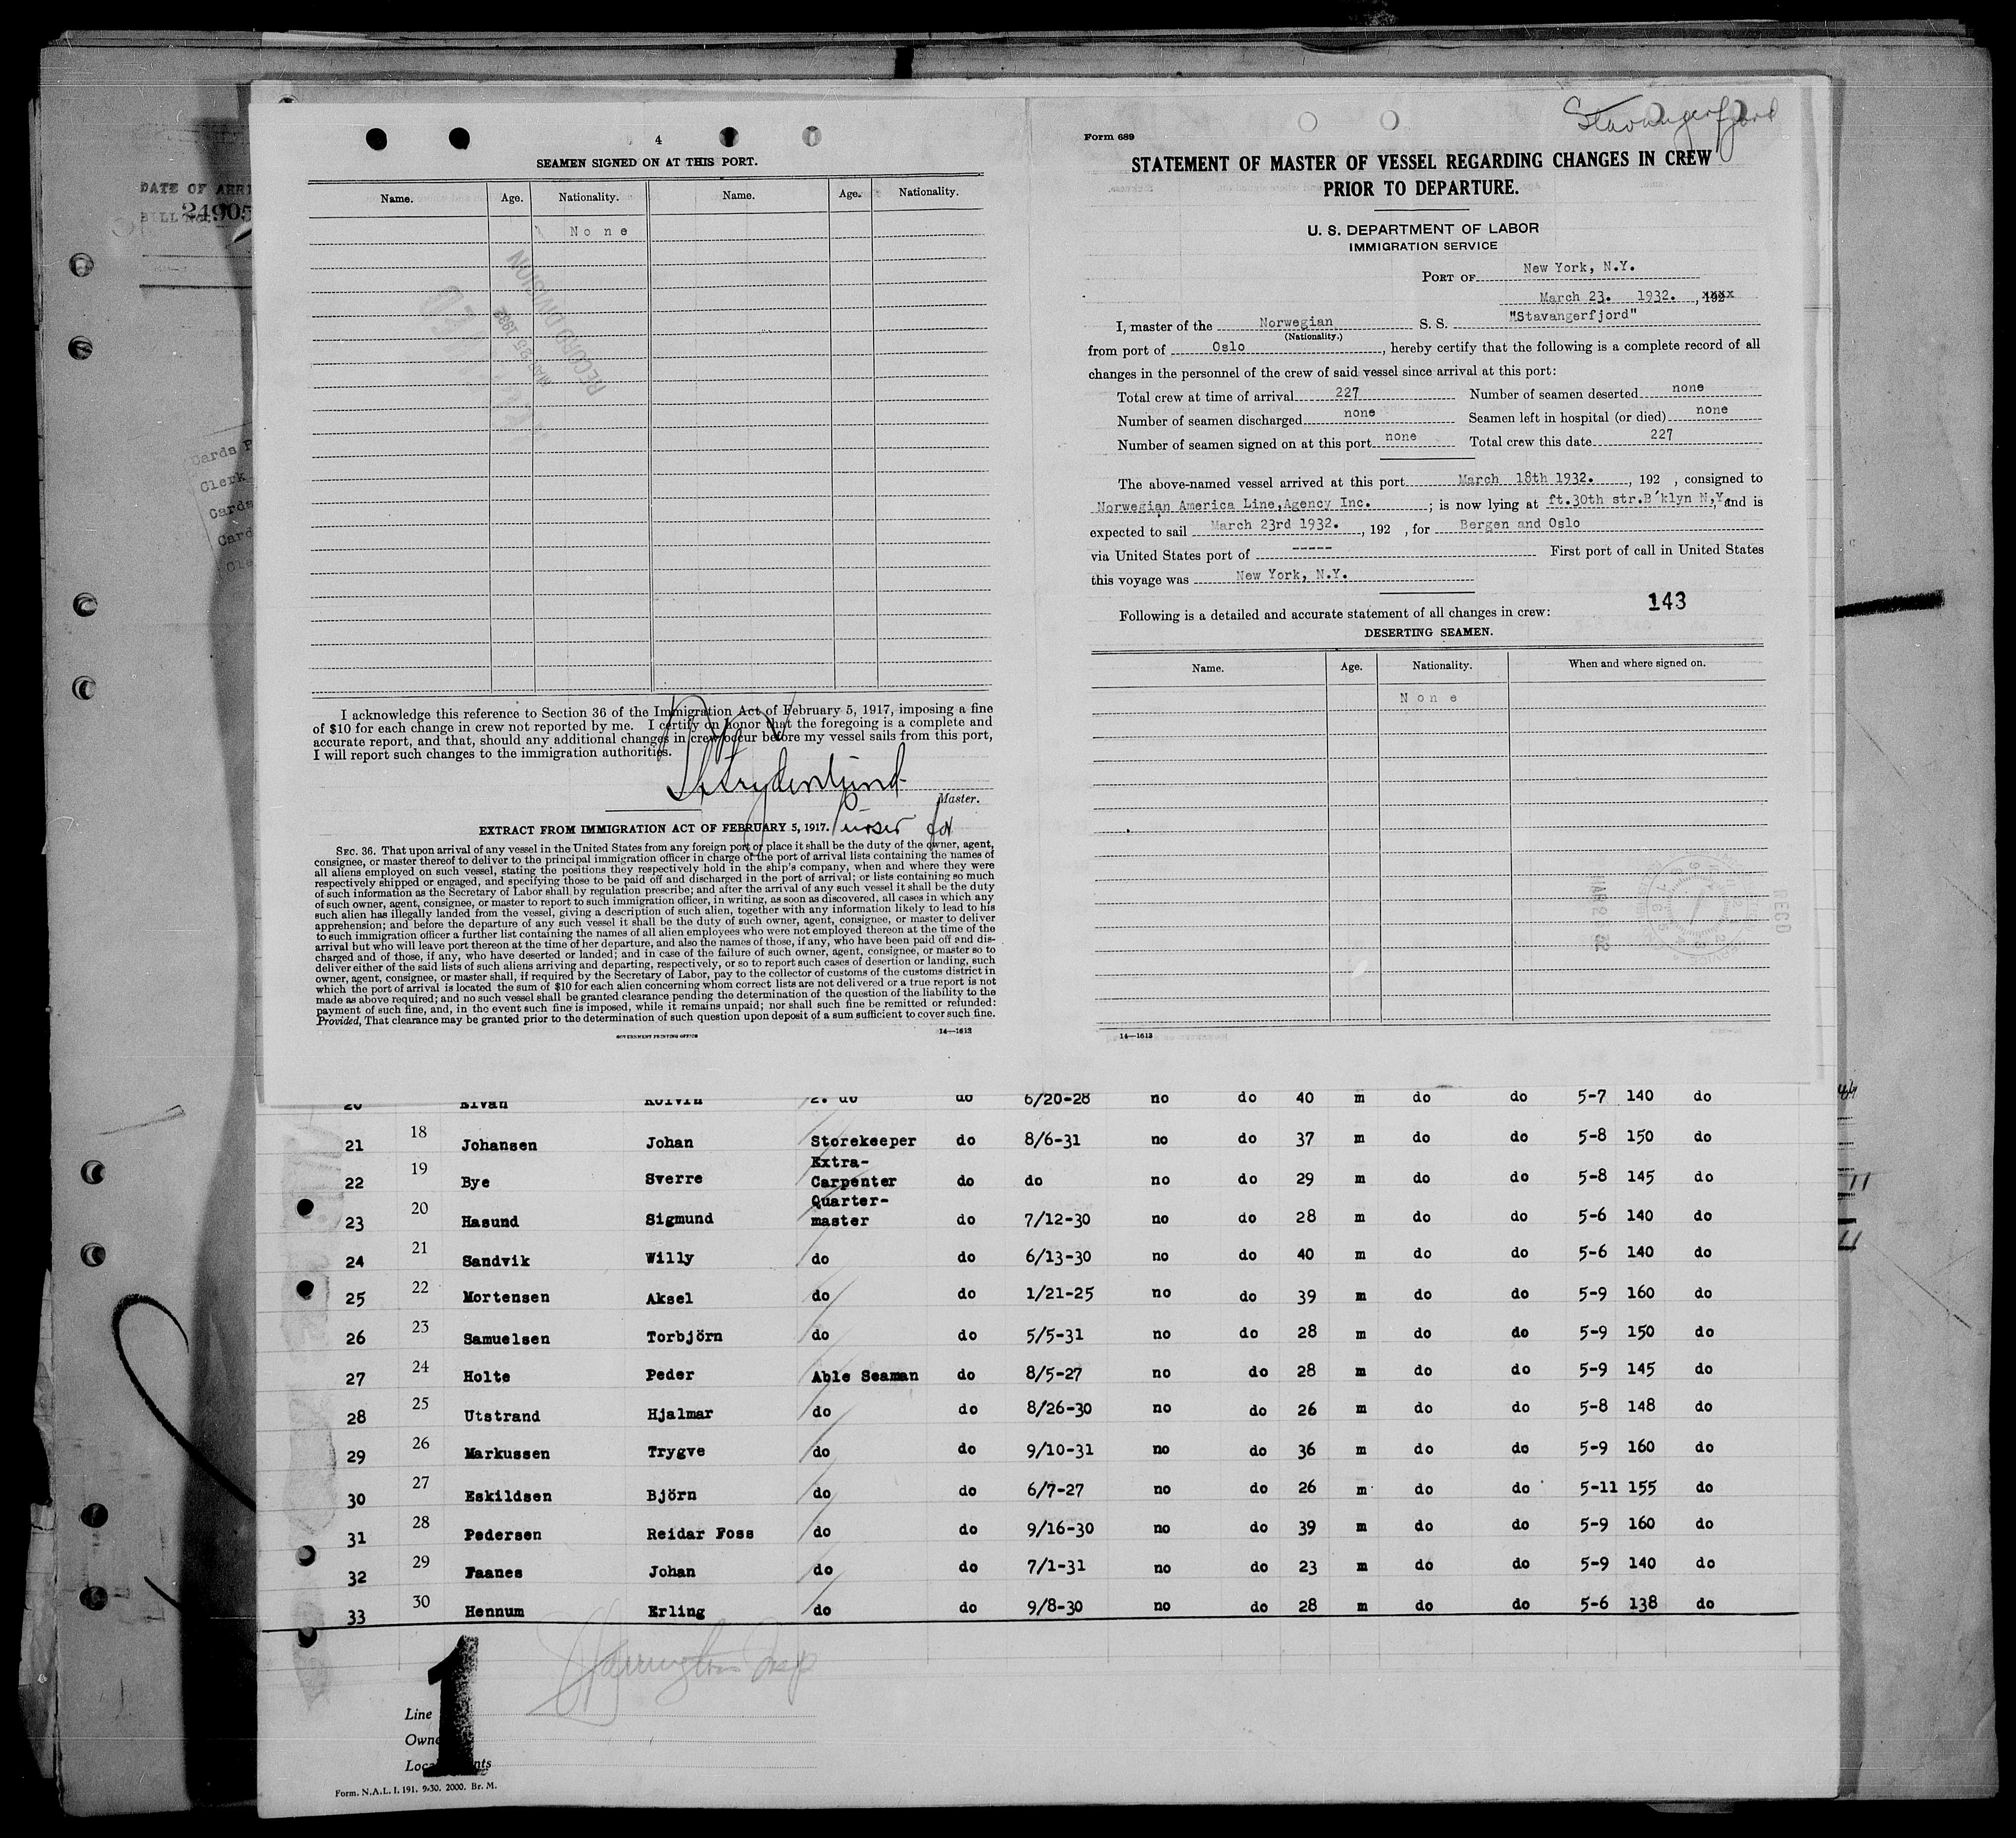 DATE OF ARRI
BILL No.
24905
Cards P
Clerk
Cards
Card
Cle
4
SEAMEN SIGNED ON AT THIS PORT.
Name. Age. Nationality. Name. Age. Nationality.
None
RECORD DIVISION
MAR 25 1932
I acknowledge this reference to Section 36 of the Immigration Act of February 5, 1917, imposing a fine
of $10 for each change in crew not reported by me. I certify on honor that the foregoing is a complete and
accurate report, and that, should any additional changes in crew occur before my vessel sails from this port,
I will report such changes to the immigration authorities.
Master.
Purser for
EXTRACT FROM IMMIGRATION ACT OF FEBRUARY 5, 1917.
SEC. 36. That upon arrival of any vessel in the United States from any foreign port or place it shall be the duty of the owner, agent,
consignee, or master thereof to deliver to the principal immigration officer in charge of the port of arrival lists containing the names of
all aliens employed on such vessel, stating the positions they respectively hold in the ship's company, when and where they were
respectively shipped or engaged, and specifying those to be paid off and discharged in the port of arrival; or lists containing so much
of such information as the Secretary of Labor shall by regulation prescribe; and after the arrival of any such vessel it shall be the duty
of such owner, agent, consignee, or master to report to such immigration officer, in writing, as soon as discovered, all cases in which any
such alien has illegally landed from the vessel, giving a description of such alien, together with any information likely to lead to his
apprehension; and before the departure of any such vessel it shall be the duty of such owner, agent, consignee, or master to deliver
to such immigration officer a further list containing the names of all alien employees who were not employed thereon at the time of the
arrival but who will leave port thereon at the time of her departure, and also the names of those, if any, who have been paid off and dis-
charged and of those, if any, who have deserted or landed; and in case of the failure of such owner, agent, consignee, or master so to
deliver either of the said lists of such aliens arriving and departing, respectively, or so to report such cases of desertion or landing, such
owner, agent, consignee, or master shall, if required by the Secretary of Labor, pay to the collector of customs of the customs district in
which the port of arrival is located the sum of $10 for each alien concerning whom correct lists are not delivered or a true report is not
made as above required; and no such vessel shall be granted clearance pending the determination of the question of the liability to the
payment of such fine, and, in the event such fine is imposed, while it remains unpaid; nor shall such fine be remitted or refunded:
Provided, That clearance may be granted prior to the determination of such question upon deposit of a sum sufficient to cover such fine.
GOVERNMENT PRINTING OFFICE 14—1613
Stavangerfjord
Form 689
STATEMENT OF MASTER OF VESSEL REGARDING CHANGES IN CREW
PRIOR TO DEPARTURE.
U. S. DEPARTMENT OF LABOR
IMMIGRATION SERVICE
PORT OF New York, N.Y.
March 23. 1932. , 192 xxxx
I, master of the Norwegian S. S. "Stavangerfjord"
(Nationality.)
from port of Oslo , hereby certify that the following is a complete record of all
changes in the personnel of the crew of said vessel since arrival at this port:
Total crew at time of arrival 227 Number of seamen deserted none
Number of seamen discharged none Seamen left in hospital (or died) none
Number of seamen signed on at this port none Total crew this date 227
The above-named vessel arrived at this port March 18th 1932. , 192 , consigned to
Norwegian America Line,Agency Inc. ; is now lying at ft.30th str.B'klyn N.Y. , and is
expected to sail March 23rd 1932. , 192 , for Bergen and Oslo
via United States port of ----- First port of call in United States
this voyage was New York, N.Y.
143
Following is a detailed and accurate statement of all changes in crew:
DESERTING SEAMEN.
Name. Age. Nationality. When and where signed on.
None
REC'D
14—1613
20 Elvan Kolvin 2. do do 6/20-28 no do 40 m do do 5-7 140 do
21 18 Johansen Johan Storekeeper do 8/6-31 no do 37 m do do 5-8 150 do
22 19 Bye Sverre Extra-Carpenter do do no do 29 m do do 5-8 145 do
23 20 Hasund Sigmund Quarter-master do 7/12-30 no do 28 m do do 5-6 140 do
24 21 Sandvik Willy do do 6/13-30 no do 40 m do do 5-6 140 do
25 22 Mortensen Aksel do do 1/21-25 no do 39 m do do 5-9 160 do
26 23 Samuelsen Torbjörn do do 5/5-31 no do 28 m do do 5-9 150 do
27 24 Holte Peder Able Seaman do 8/5-27 no do 28 m do do 5-9 145 do
28 25 Utstrand Hjalmar do do 8/26-30 no do 26 m do do 5-8 148 do
29 26 Markussen Trygve do do 9/10-31 no do 36 m do do 5-9 160 do
30 27 Eskildsen Björn do do 6/7-27 no do 26 m do do 5-11 155 do
31 28 Pedersen Reidar Foss do do 9/16-30 no do 39 m do do 5-9 160 do
32 29 Faanes Johan do do 7/1-31 no do 23 m do do 5-9 140 do
33 30 Hennum Erling do do 9/8-30 no do 28 m do do 5-6 138 do
1
Line
Owne
Loca nts
Form. N.A.L. I. 191. 9-30. 2000. Br. M.